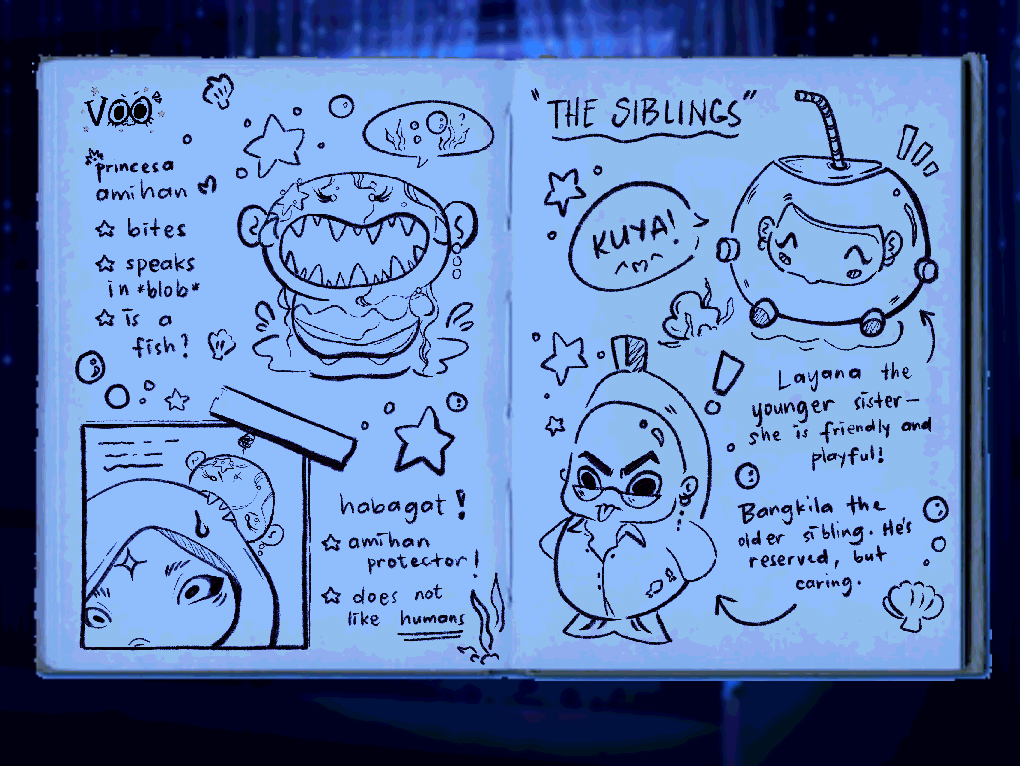 Voo
princesa
amihan
bites
speaks
in *blob*
is a
fish?
?
habagat!
amihan
protector!
does not
like humans
"THE SIBLINGS"
KUYA!
^m^
Layana the
younger sister—
she is friendly and
playful!
Bangkila the
older sibling. He's
reserved, but
caring.